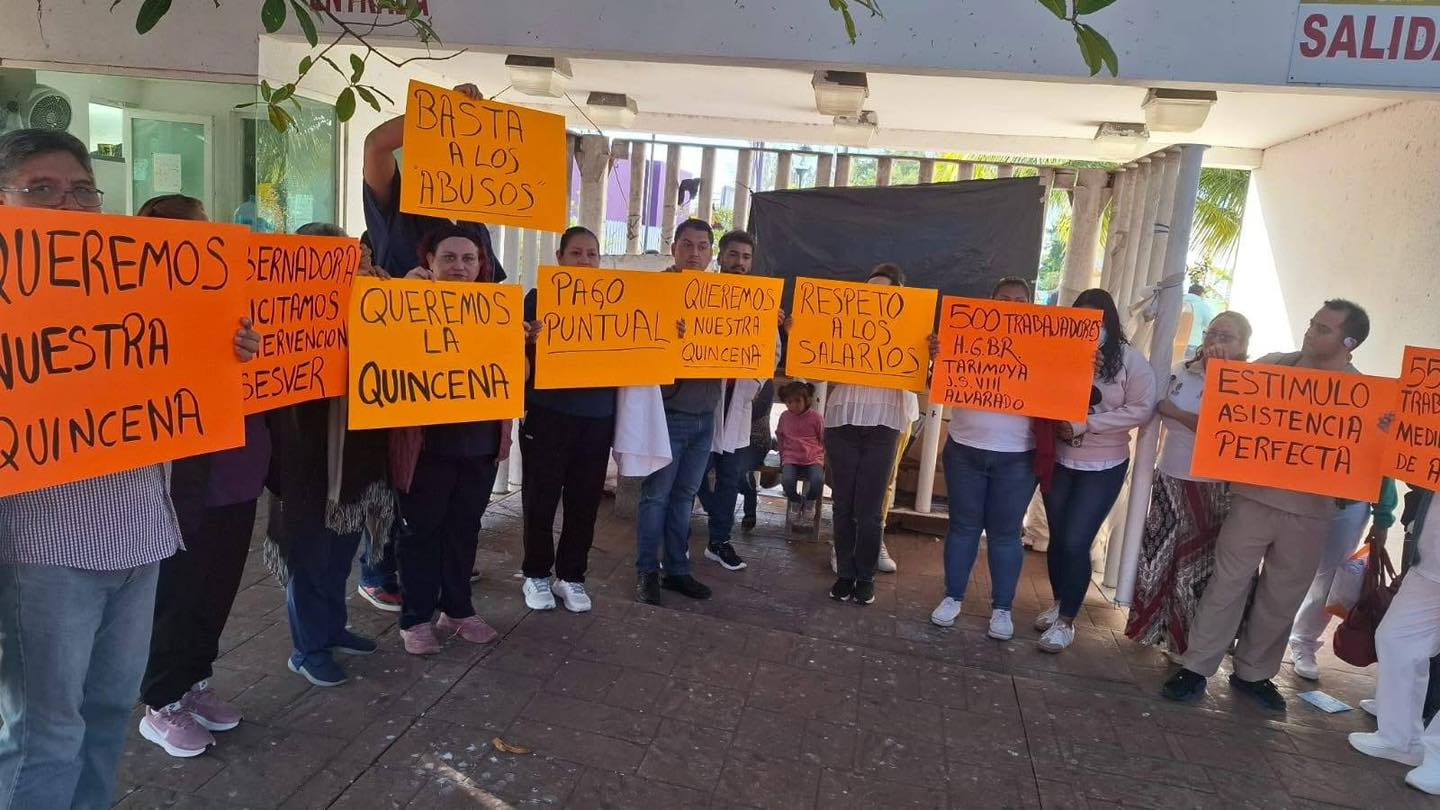 ENTRADA
SALIDA
BASTA
A LOS
"ABUSOS"
QUEREMOS
NUESTRA
QUINCENA
BERNADORA
ICITAMOS
ERVENCION
SESVER
QUEREMOS
LA
QUINCENA
PAGO
PUNTUAL
QUEREMOS
NUESTRA
QUINCENA
RESPETO
A LOS
SALARIOS
500 TRABAJADORES
H.G.BR.
TARIMOYA
J.S. VIII
ALVARADO
ESTIMULO
ASISTENCIA
PERFECTA
55
TRAB
MEDI
DE A